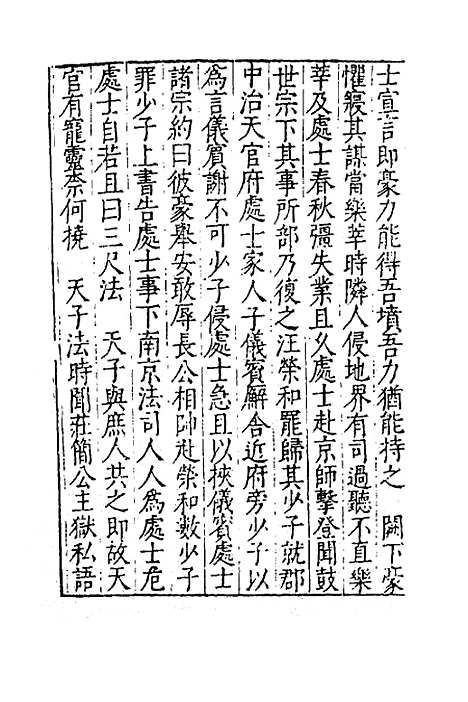 士宣言即豪力能得吾墳吾力猶能持之　闕下豪
懼寢其謀當樂莘時隣人侵地界有司過聽不直樂
莘及處士春秋彊失業且久處士赴京師擊登聞鼓
世宗下其事所部乃復之汪榮和罷歸其少子就郡
中治天官府處士家人子儀賓廨舍近府旁少子以
爲言儀賓謝不可少子侵處士急且以挾儀賓處士
諸宗約曰彼豪舉安敢辱長公相帥赴榮和數少子
罪少子上書告處士事下南京法司人人爲處士危
處士自若且曰三尺法　天子與庶人共之即故天
官有寵靈奈何撓　天子法時聞莊簡公主獄私語